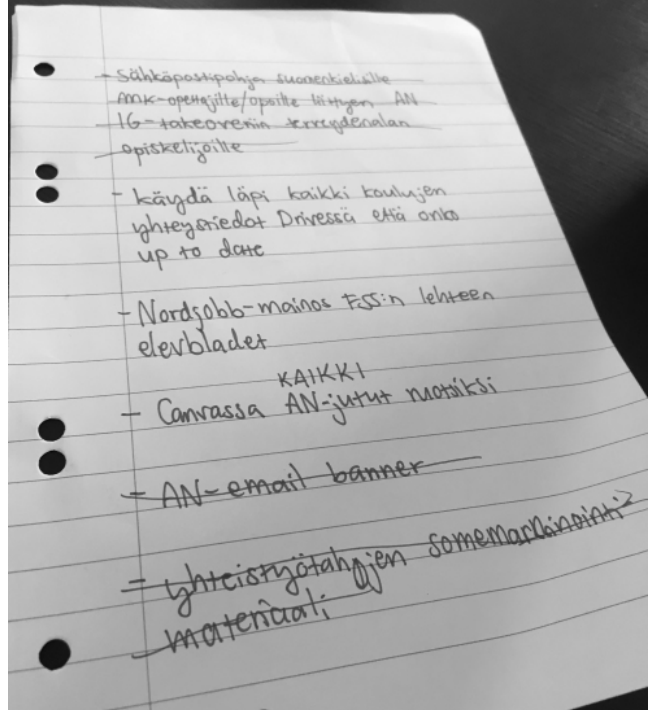 - Sähköpostipohja suomenkielisille
AMK-opettajille/opoille liittyen AN
IG-takeoveriin terveydenalan
opiskelijoille
- käydä läpi kaikki koulujen
yhteystiedot Drivessä että onko
up to date
- Nordjobb-mainos FSS:n lehteen
elevbladet
KAIKKI
- Canvassa AN-jutut ruotsiksi
- AN-email banner
- yhteistyötahojen somemarkinointi
materiaali